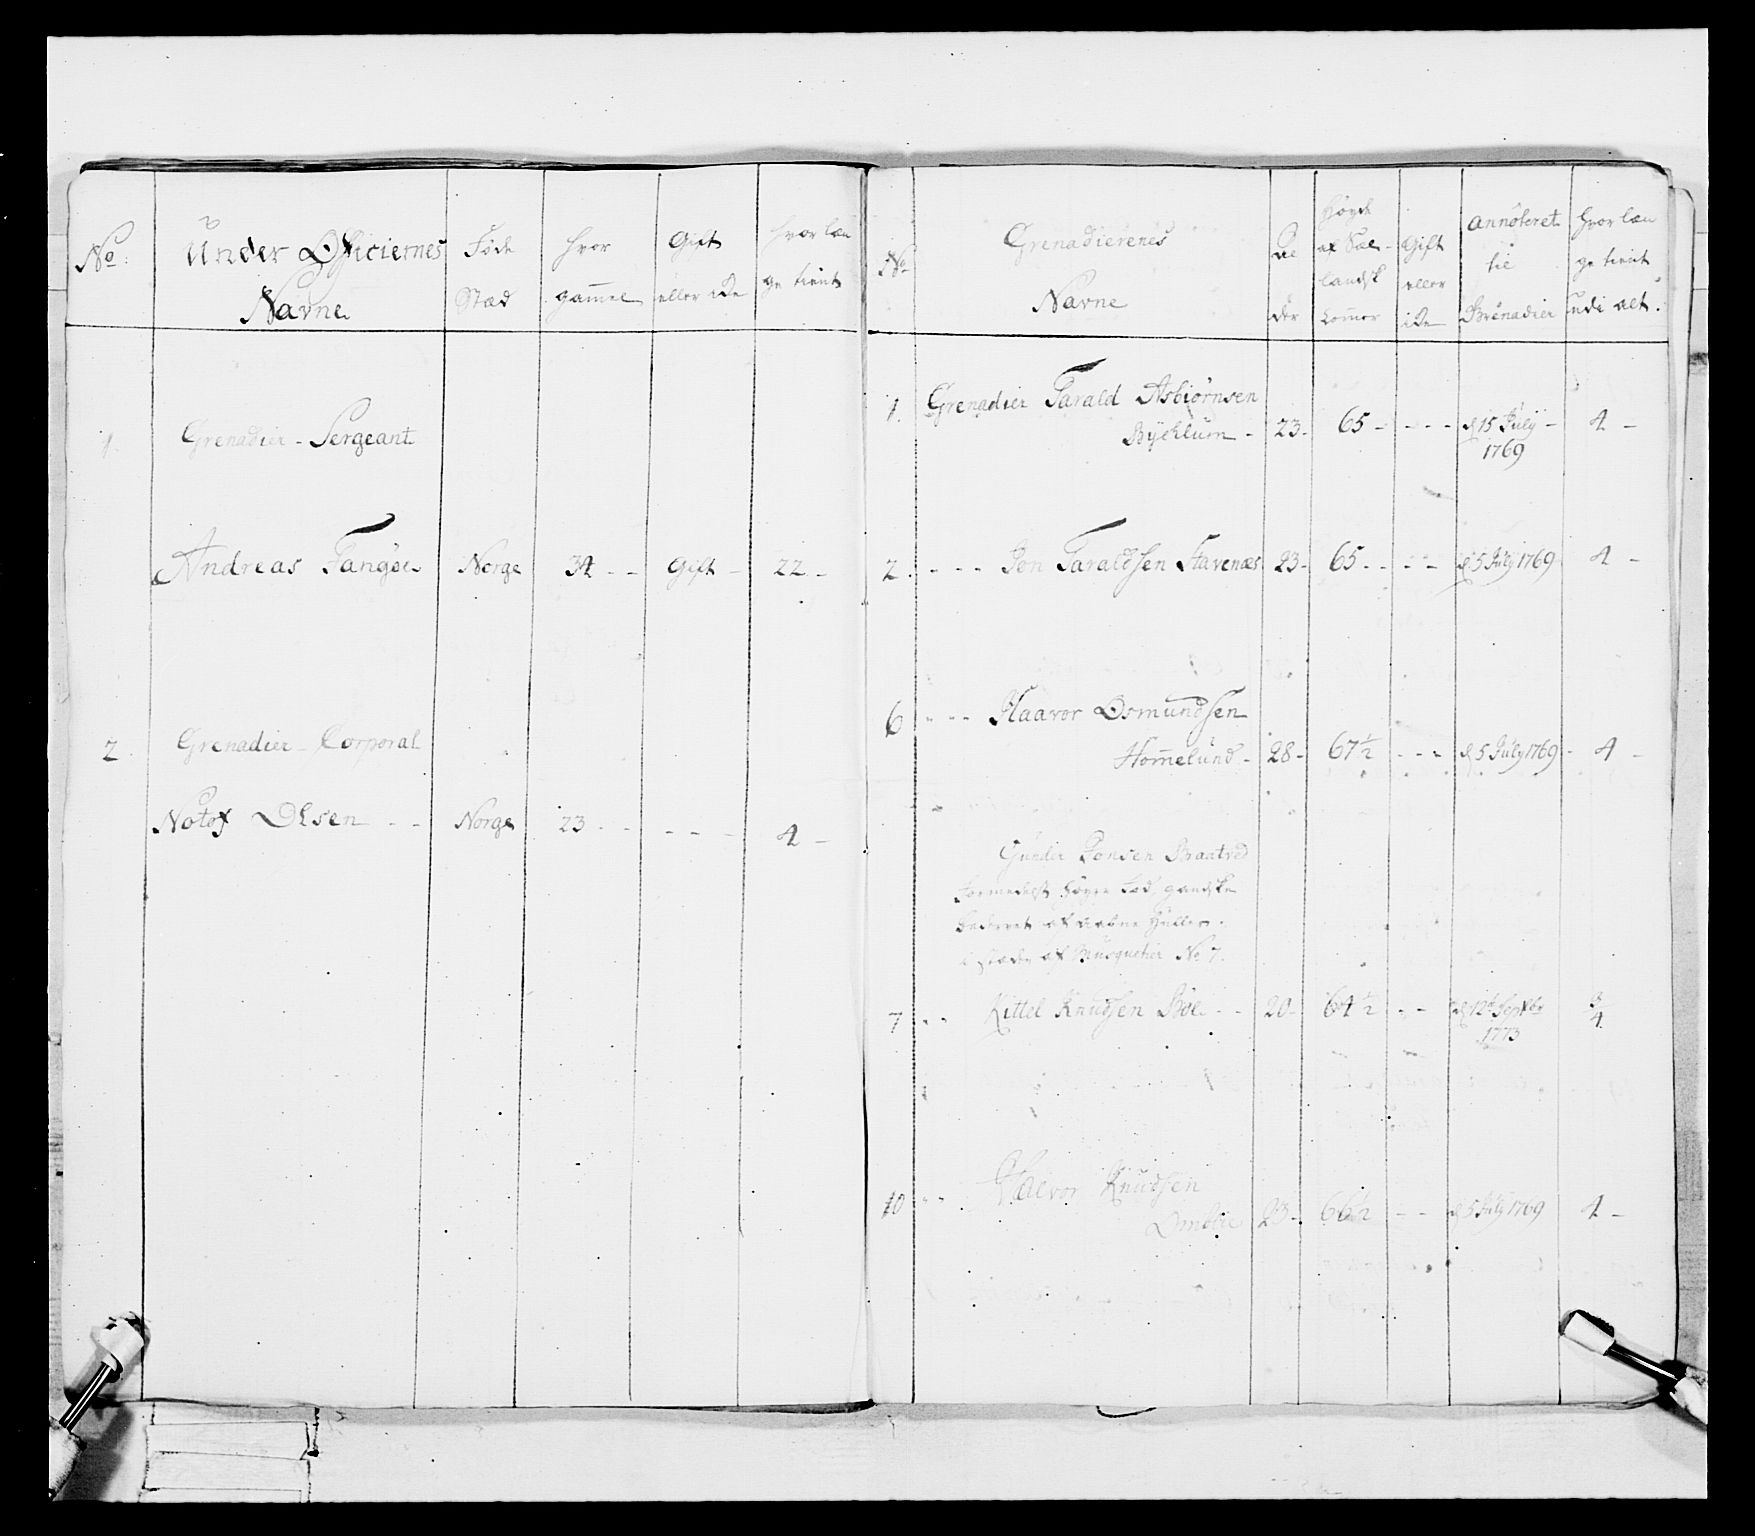 No:
Under Officiernes
Navne
Føde
Stæd
hvor
gammel
Gift
eller icke
hvor læn
ge tient
1.
Grenadier - Sergeant
Andreas Fangøe
Norge
34 - -
Gift -
22 -
2.
Grenadier - Corporal
Notof Olsen - -
Norge
23 - -
- - -
4 -
No
Grenadierenes
Navne
Al
der
Høyde
af Sæl-
landsk
Tommer
Gift
eller
icke
Annoteret
til
Grenadier
hvor læn
ge tient
udi alt.
1. Grenadier Tarald Asbiørnsen
Byeklum - 23 - 65 - - - - d 15 July - 4 -
1769
2. - - - Jon Taraldsen Stavenæs 23 - 65 - - - - d 5 July 1769 4 -
6 - - - Haavor Osmundsen
Hommelund - 28 - 67½ - - - d 5 July 1769 - 4 -
Gunder Jonsen Braatved
formedelst høyre Fod, gandske
bedervet af aabne Huller.
i stæden af Musquetier No 7.
7 - - Kittel Knudsen Bøe - - 20 - 64½ - - d 12t Septbr ¾
1773
10 - - Halvor Knudsen
23 - 66½ - - d 5 July 1769 4 -